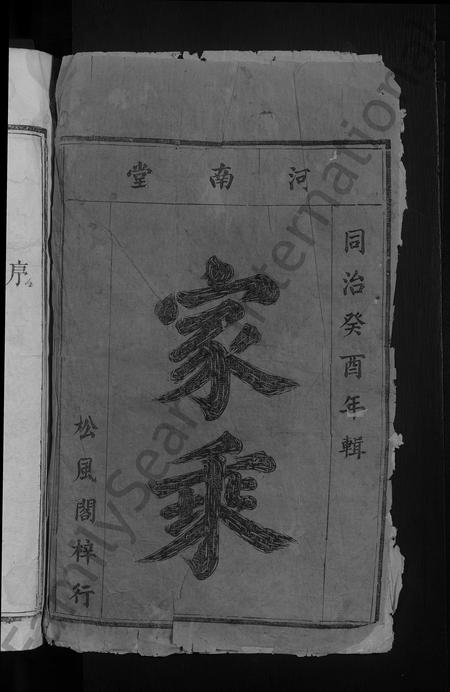 河南堂
同治癸酉年輯
家乘
松風閣梓行
序
FamilySearch International